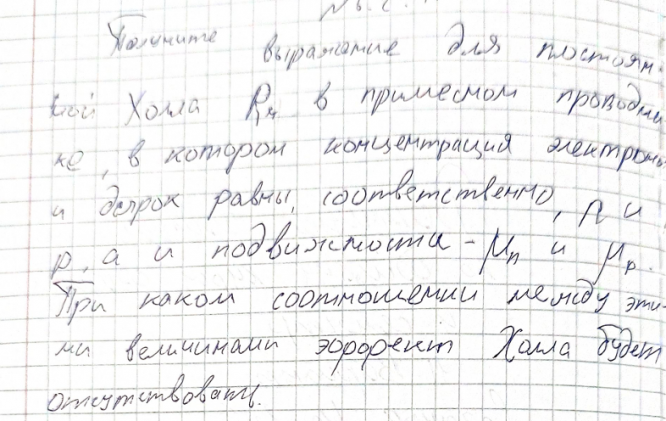 Получите выражение для постоян-
ной Холла Rн в примесном проводни
ке, в котором концентрация электроны
и дырок равны, соответственно, n и
p, а и подвижности - μn и μp.
При каком соотношении между эти-
ми величинами эффект Холла будет
отсутствовать.